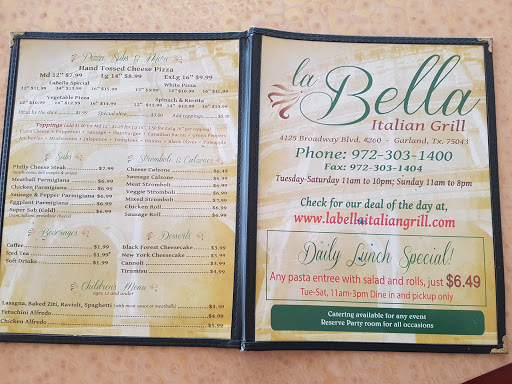 Pizza, Subs & More
Hand Tossed Cheese Pizza
Md 12" $7.99 Lg 14" $8.99 Ex.Lg 16" $9.99
LaBella Special
12" $11.99 14" 16"
White Pizza
12" $10.99 16" $11.99
Vegetable Pizza
12" $10.99 14" $12.99 16"
Spinach & Ricotta
12" 14" $12.99 16"
Pizza by the slice $1.99 Special slice Add toppings
Toppings
Extra Cheese • Pepperoni • Sausage • Hamburger • Canadian Bacon • Green Peppers
Anchovies • Mushrooms • Jalapenos • Tomatoes • Onions • Black Olives • Pineapple
Subs
Philly Cheese Steak $7.99
Meatball Parmigiana $6.99
Chicken Parmigiana $6.99
Sausage & Pepper Parmigiana $6.99
Eggplant Parmigiana $6.99
Super Sub (Cold) $6.99
Stromboli & Calzones
Cheese Calzone $6.49
Sausage Calzone
Meat Stromboli
Veggie Stromboli
Mixed Stromboli $7.99
Chicken Roll $6.99
Sausage Roll $6.99
Beverages
Coffee $1.99
Iced Tea $1.99
Soft Drinks $1.99
Desserts
Black Forest Cheesecake $3.99
New York Cheesecake $3.99
Cannoli $3.99
Tiramisu $4.99
Children's Menu
ages 12 and under
Lasagna, Baked Ziti, Ravioli, Spaghetti (with meat sauce or meatballs) $4.50
Fetuchini Alfredo $4.99
Chicken Alfredo $5.99
la
Bella
Italian Grill
4125 Broadway Blvd. #260 - Garland, Tx. 75043
Phone: 972-303-1400
Fax: 972-303-1404
Tuesday-Saturday 11am to 10pm; Sunday 11am to 8pm
Check for our deal of the day at,
www.labellaitaliangrill.com
Daily Lunch Special!
Any pasta entree with salad and rolls, just $6.49
Tue-Sat, 11am-3pm Dine in and pickup only
Catering available for any event
Reserve Party room for all occasions